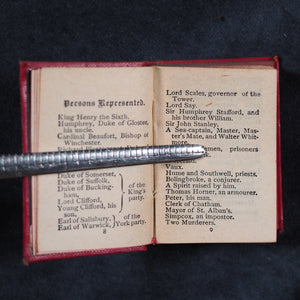 Persons Represented.
King Henry the Sixth.
Humphrey, Duke of Gloster,
his uncle.
Cardinal Beaufort, Bishop of
Winchester.
Duke of Somerset,
Duke of Suffolk,
Duke of Bucking-
ham,
Lord Clifford,
Young Clifford, his
son,
of the
King's
party.
Earl of Salisbury,
Earl of Warwick,
of the
York party.
8
Lord Scales, governor of the
Tower.
Lord Say.
Sir Humphrey Stafford, and
his brother William.
Sir John Stanley.
A Sea-captain, Master, Mas-
ter's Mate, and Walter Whit-
more.
prisoners
Vaux.
Hume and Southwell, priests.
Bolingbroke, a conjurer.
A Spirit raised by him.
Thomas Horner, an armourer.
Peter, his man.
Clerk of Chatham.
Mayor of St. Alban's.
Simpcox, an impostor.
Two Murderers.
9